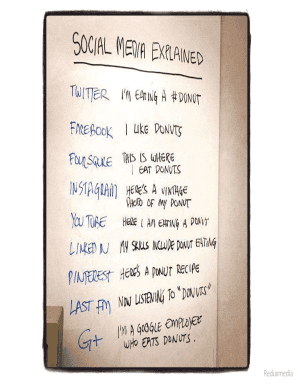 SOCIAL MEDIA EXPLAINED
TWITTER I'M EATING A #DONUT
FACEBOOK I LIKE DONUTS
FOURSQUARE THIS IS WHERE
I EAT DONUTS
INSTAGRAM HERE'S A VINTAGE
PHOTO OF MY DONUT
YOUTUBE HERE I AM EATING A DONUT
LINKED IN MY SKILLS INCLUDE DONUT EATING
PINTEREST HERE'S A DONUT RECIPE
LAST FM NOW LISTENING TO "DONUTS"
G+ I'M A GOOGLE EMPLOYEE
WHO EATS DONUTS.